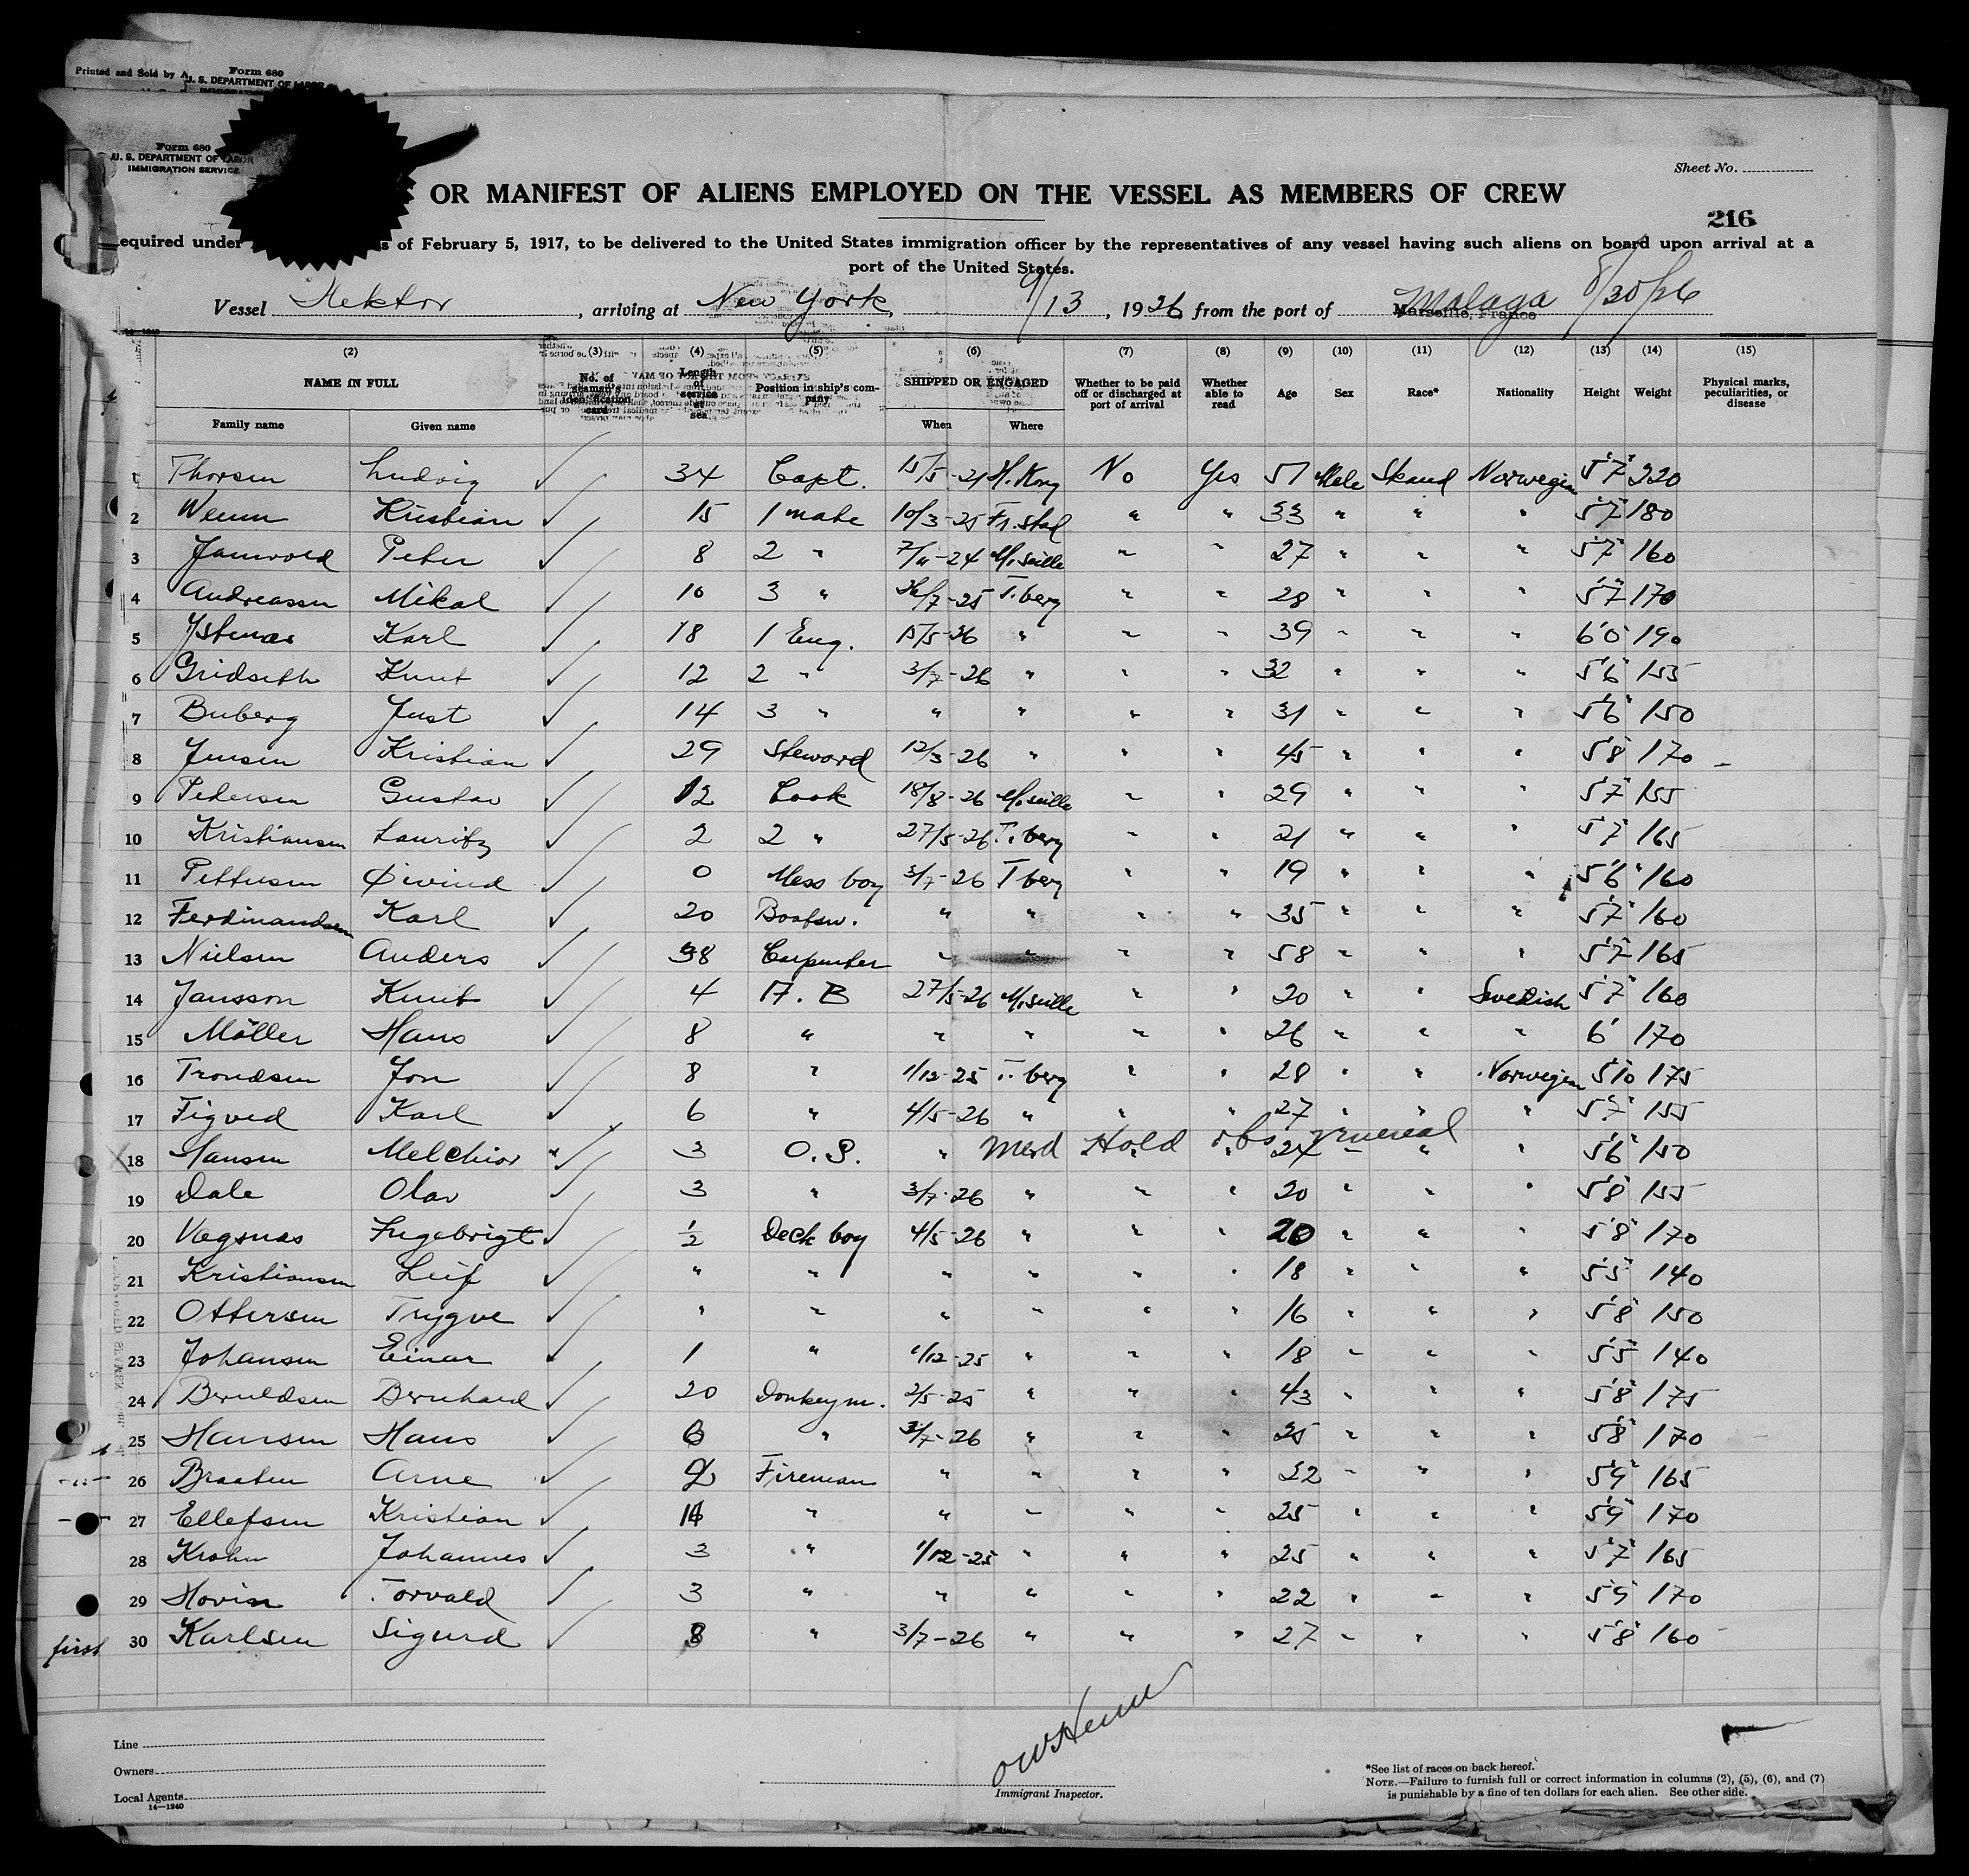 Printed and Sold by A
Form 680
U. S. DEPARTMENT OF LABOR
Form 680
U. S. DEPARTMENT OF LABOR
IMMIGRATION SERVICE
Sheet No.
OR MANIFEST OF ALIENS EMPLOYED ON THE VESSEL AS MEMBERS OF CREW
216
equired under s of February 5, 1917, to be delivered to the United States immigration officer by the representatives of any vessel having such aliens on board upon arrival at a
port of the United States.
Vessel Hektor, arriving at New York, 9/13, 1926 from the port of Marseille, France Malaga 8/30/26
(2) (3) (4) (5) (6) (7) (8) (9) (10) (11) (12) (13) (14) (15)
NAME IN FULL No. of seaman's identification card Length of service at sea Position in ship's company SHIPPED OR ENGAGED Whether to be paid off or discharged at port of arrival Whether able to read Age Sex Race* Nationality Height Weight Physical marks, peculiarities, or disease
Family name Given name When Where
1 Thorsen Ludvig ✓ 34 Capt. 15/5-21 H. Kong No Yes 51 Male Skand Norwegian 5'7" 220
2 Kristian ✓ 15 1 mate 10/3-25 Fr. stad " " 33 " " " 5'7" 180
3 Peter ✓ 8 2 " 7/11-24 M. seille " " 27 " " " 5'7" 160
4 Andreassen Mikal ✓ 10 3 " 26/7-25 T. berg " " 28 " " " 5'7" 170
5 Ystenes Karl ✓ 18 1 Eng. 15/5-26 " " " 39 " " " 6'0" 190
6 Gridseth Knut ✓ 12 2 " 3/7-26 " " " 32 " " " 5'6" 155
7 Buberg Just ✓ 14 3 " " " " " 31 " " " 5'6" 150
8 Jensen Kristian ✓ 29 Steward 12/3-26 " " " 45 " " " 5'8" 170
9 Pedersen Gustav ✓ 12 Cook 18/8-26 M. seille " " 29 " " " 5'7" 155
10 Kristiansen Lauritz ✓ 2 2 " 27/5-26 T. berg " " 21 " " " 5'7" 165
11 Pettersen Øivind ✓ 0 Mess boy 3/7-26 T berg " " 19 " " " 5'6" 160
12 Ferdinandsen Karl ✓ 20 Boatsw. " " " " 35 " " " 5'7" 160
13 Nielsen Anders ✓ 38 Carpenter " " " " 58 " " " 5'7" 165
14 Jansson Knut ✓ 4 A. B 27/5-26 M. seille " " 20 " " Swedish 5'7" 160
15 Möller Hans ✓ 8 " " " " " 26 " " " 6' 170
16 Trondsen Jon ✓ 8 " 1/12-25 T. berg " " 28 " " Norwegian 5'10" 175
17 Figved Karl ✓ 6 " 4/5-26 " " " 27 " " " 5'7" 155
Med Hold obs venereal
X 18 Hansen Melchior ✓ 3 O. S. " " " 24 " " " 5'6" 150
19 Dale Olav ✓ 3 " 3/7-26 " " " 20 " " " 5'8" 155
20 Vegsnes Ingebrigt ✓ 1/2 Deck boy 4/5-26 " " " 20 " " " 5'8" 170
21 Kristiansen Leif ✓ " " " " " " 18 " " " 5'5" 140
22 Ottersen Trygve ✓ " " " " " " 16 " " " 5'8" 150
23 Johansen Einar ✓ 1 " 1/12-25 " " " 18 " " " 5'5" 140
24 Berntdsen Bernhard ✓ 20 Donkeym. 2/5-25 " " " 43 " " " 5'8" 175
25 Hansen Hans ✓ 6 " 3/7-26 " " " 25 " " " 5'8" 170
26 Braaten Arne ✓ 2 Fireman " " " " 22 " " " 5'9" 165
27 Ellefsen Kristian ✓ " " " " " 25 " " " 5'9" 170
28 Krohn Johannes ✓ 3 " 1/12-25 " " " 25 " " " 5'7" 165
29 Hovin Torvald ✓ 3 " " " " " 22 " " " 5'9" 170
first 30 Karlsen Sigurd ✓ 8 " 3/7-26 " " " 27 " " " 5'8" 160
Line
Owners
Local Agents
14—1240
Immigrant Inspector.
*See list of races on back hereof.
NOTE.—Failure to furnish full or correct information in columns (2), (5), (6), and (7)
is punishable by a fine of ten dollars for each alien. See other side.